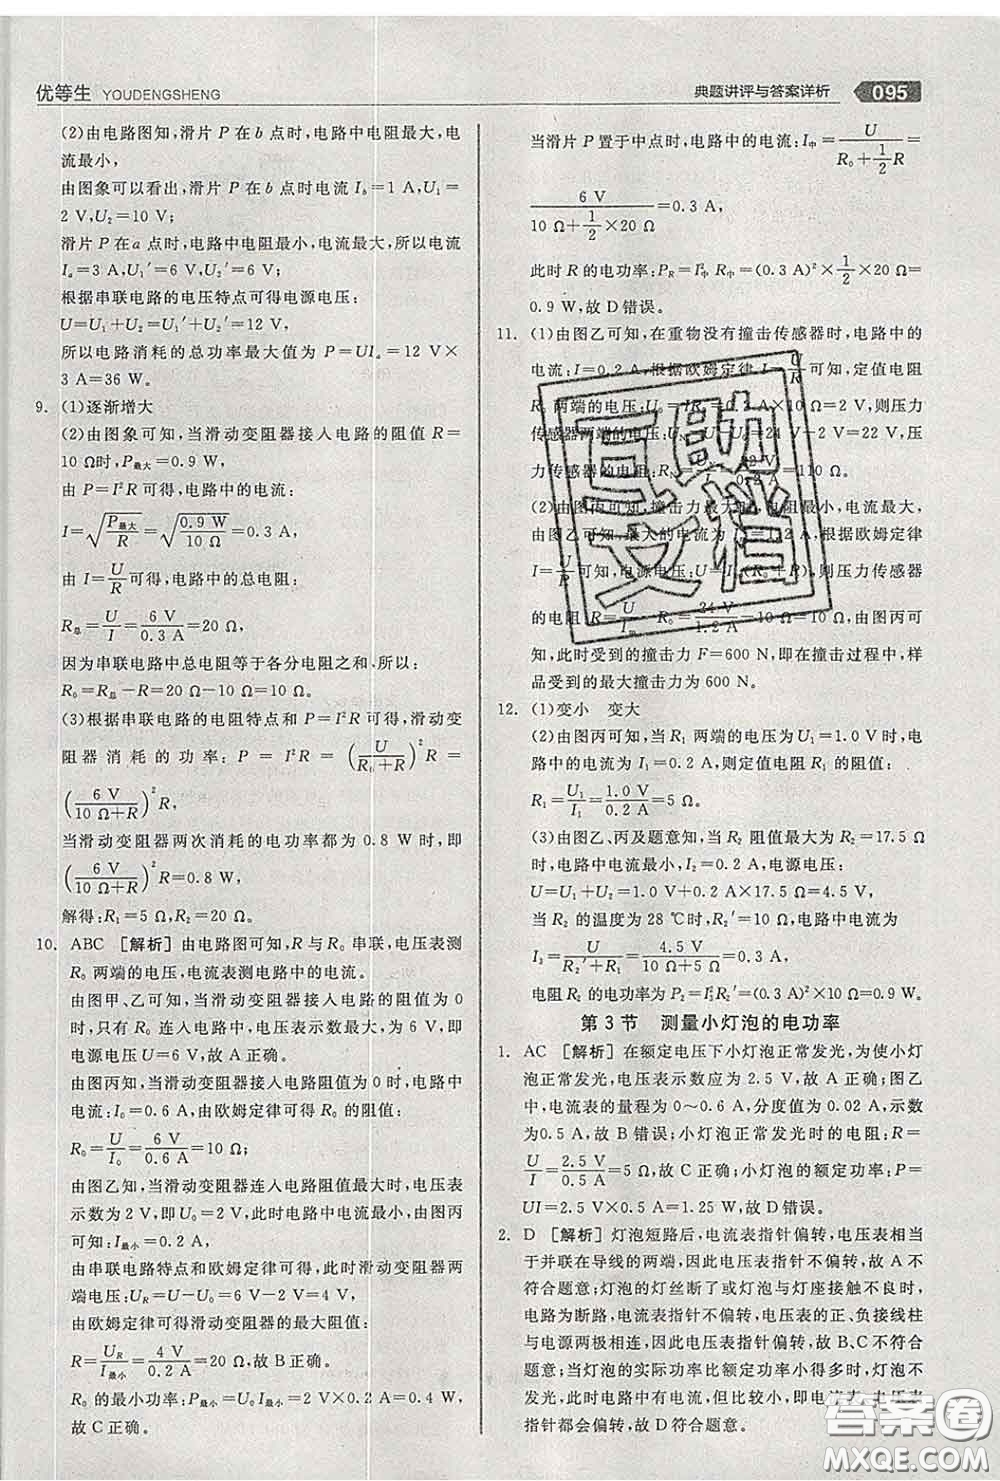 优等生 YOUDENGSHENG
典题讲评与答案详析 095
(2)由电路图知，滑片 P 在 b 点时，电路中电阻最大，电
流最小，
由图象可以看出，滑片 P 在 b 点时电流 I_b=1 A，U₁=
2 V，U₂=10 V；
滑片 P 在 a 点时，电路中电阻最小，电流最大，所以电流
I_a=3 A，U₁′=6 V，U₂′=6 V；
根据串联电路的电压特点可得电源电压：
U=U₁+U₂=U₁′+U₂′=12 V，
所以电路消耗的总功率最大值为 P=UI_a=12 V×
3 A=36 W。
9. (1)逐渐增大
(2)由图象可知，当滑动变阻器接入电路的阻值 R=
10 Ω时，P最大=0.9 W，
由 P=I²R 可得，电路中的电流：
I=√(P最大/R)=√(0.9 W/10 Ω)=0.3 A，
由 I=U/R 可得，电路中的总电阻：
R总=U/I=6 V/0.3 A=20 Ω，
因为串联电路中总电阻等于各分电阻之和，所以：
R₀=R总-R=20 Ω-10 Ω=10 Ω。
(3)根据串联电路的电阻特点和 P=I²R 可得，滑动变
阻器消耗的功率：P=I²R=(U/(R₀+R))²R=
(6 V/(10 Ω+R))²R，
当滑动变阻器两次消耗的电功率都为 0.8 W 时，即
(6 V/(10 Ω+R))²R=0.8 W，
解得：R₁=5 Ω，R₂=20 Ω。
10. ABC [解析] 由电路图可知，R 与 R₀ 串联，电压表测
R₀ 两端的电压，电流表测电路中的电流。
由图甲、乙可知，当滑动变阻器接入电路的阻值为 0
时，只有 R₀ 连入电路中，电压表示数最大，为 6 V，即
电源电压 U=6 V，故 A 正确。
由图丙知，当滑动变阻器连入阻值为 0 时，电路中
电流：I₀=0.6 A，由欧姆定律可得 R₀ 的阻值：
R₀=U/I₀=6 V/0.6 A=10 Ω，故 B 正确。
由图乙知，当滑动变阻器连入电路阻值最大时，电压表
示数为 2 V，即 U₀=2 V，此时电路中电流最小，由图丙
可知：I最小=0.2 A，
由串联电路特点和欧姆定律可得，此时滑动变阻器两
端电压：U_R=U-U₀=6 V-2 V=4 V，
由欧姆定律可得滑动变阻器的最大阻值：
R=U_R/I最小=4 V/0.2 A=20 Ω，故 B 正确。
R₀ 的最小功率：P最小=U₀I最小=2 V×0.2 A=0.4 W，
故 C 正确。
当滑片 P 置于中点时，电路中的电流：I中=U/(R₀+½R)=
6 V/(10 Ω+½×20 Ω)=0.3 A，
此时 R 的电功率：P_R=I²中 R中=(0.3 A)²×½×20 Ω=
0.9 W，故 D 错误。
11. (1)由图乙可知，在重物没有撞击传感器时，电路中的
电流：I=0.2 A，根据欧姆定律 I=U/R 可知，定值电阻
R₀ 两端的电压：U₀=IR₀=0.2 A×10 Ω=2 V，则压力
传感器两端的电压：U_N=U-U₀=24 V-2 V=22 V，压
力传感器的电阻：R_N=22 V/0.2 A=110 Ω。
(2)由图丙可知，撞击力最大时，电流最大，
由图乙可知，最大电流 1.2 A，由欧姆定律
I=U/R可知，电源电压：U=I(R₀+R)，则压力传感器
的电阻：R=U/I_m-R₀=24 V/1.2 A-10 Ω=10 Ω，由图丙可
知，此时受到的撞击力 F=600 N，在撞击过程中，样
品受到的最大撞击力为 600 N。
12. (1)变小 变大
(2)由图丙可知，当 R₁ 两端的电压为 U₁=1.0 V时，电
路中的电流为 I₁=0.2 A，则定值电阻 R₁ 的阻值：
R₁=U₁/I₁=1.0 V/0.2 A=5 Ω；
(3)由图乙、丙及题意知，当 R₂ 阻值最大为 R₂=17.5 Ω
时，电路中电流最小，I=0.2 A，电源电压：
U=U₁+U₂=1.0 V+0.2 A×17.5 Ω=4.5 V，
当 R₂ 的温度为 28 ℃时，R₂′=10 Ω，电路中电流为
I₃=U/(R₂′+R₁)=4.5 V/(10 Ω+5 Ω)=0.3 A，
电阻 R₂ 的电功率为 P₂=I₃²R₂′=(0.3 A)²×10 Ω=0.9 W。
第 3 节 测量小灯泡的电功率
1. AC [解析] 在额定电压下小灯泡正常发光，为使小灯
泡正常发光，电压表示数应为 2.5 V，故 A 正确；图乙
中，电流表的量程为 0～0.6 A，分度值为 0.02 A，示数
为0.5 A，故 B 错误；小灯泡正常发光时的电阻：R=
U/I=2.5 V/0.5 A=5 Ω，故 C 正确；小灯泡的额定功率：P=
UI=2.5 V×0.5 A=1.25 W，故 D 错误。
2. D [解析] 灯泡短路后，电流表指针偏转，电压表相当
于并联在导线的两端，因此电压表指针不偏转，故 A 不
符合题意；灯泡的灯丝断了或灯泡与灯座接触不良，
电路为断路，电流表指针不偏转，电压表的正、负接线柱
与电源两极相连，因此电压表指针偏转，故 B、C 不符合
题意；当灯泡的实际功率比额定功率小得多时，灯泡不
发光，此时电路中有电流，但比较小，因此电流表、电压表
指针都会偏转，故 D 符合题意。
互助文档
答案圈
MXQE.COM